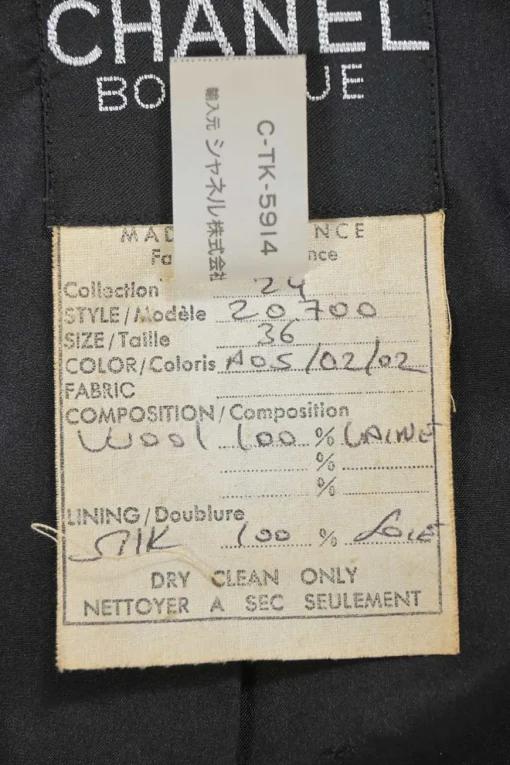 CHANEL
BO UE
C-TK-5914
輸入元 シャネル株式会社
MAD NCE
Fa nce
Collection 24
STYLE/Modèle 20700
SIZE/Taille 36
COLOR/Coloris A05/02/02
FABRIC
COMPOSITION/Composition
Wool 100 % LAINE
%
%
LINING/Doublure
SILK 100 % SOIE
DRY CLEAN ONLY
NETTOYER A SEC SEULEMENT